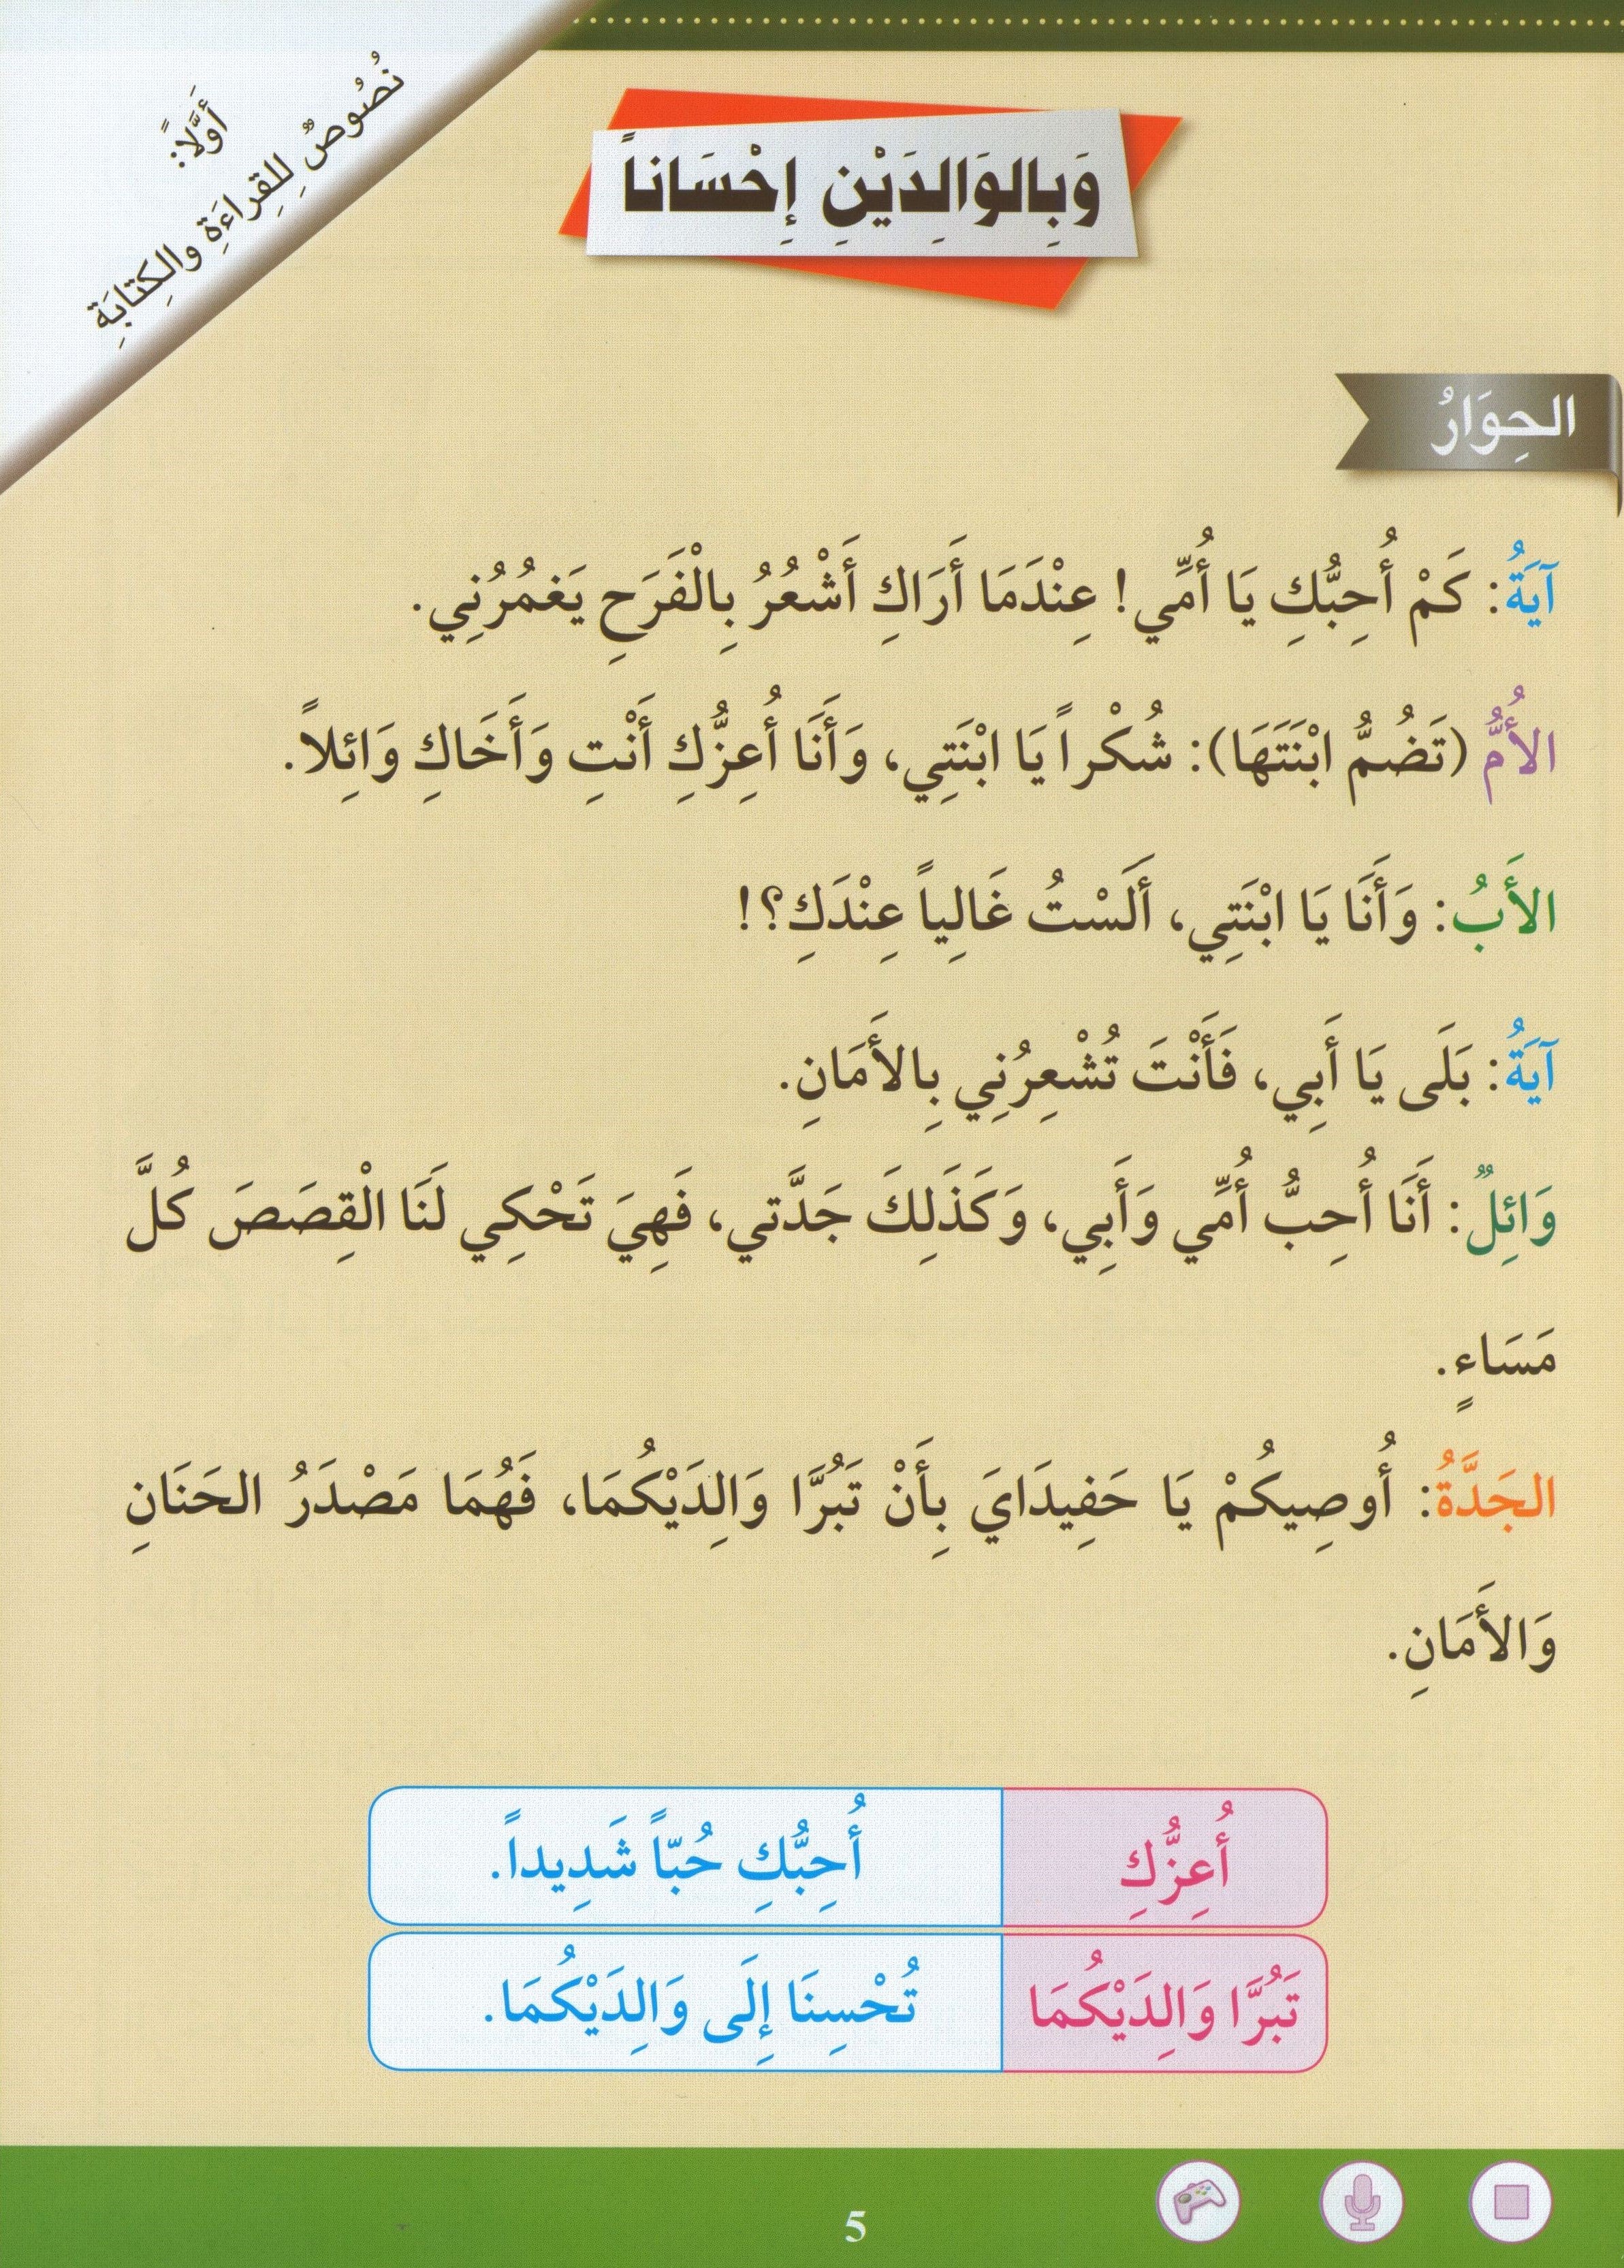 أَوَّلاً:
نُصُوصٌ لِلقِراءَةِ والكِتابَةِ
وَبِالوَالِدَيْنِ إِحْسَاناً
الحِوَارُ
آيَةُ: كَمْ أُحِبُّكِ يَا أُمِّي! عِنْدَمَا أَرَاكِ أَشْعُرُ بِالْفَرَحِ يَغمُرُنِي.
الأُمُّ (تَضُمُّ ابْنَتَهَا): شُكْراً يَا ابْنَتِي، وَأَنَا أُعِزُّكِ أَنْتِ وَأَخَاكِ وَائِلاً.
الأَبُ: وَأَنَا يَا ابْنَتِي، أَلَسْتُ غَالِياً عِنْدَكِ؟!
آيَةُ: بَلَى يَا أَبِي، فَأَنْتَ تُشْعِرُنِي بِالأَمَانِ.
وَائِلٌ: أَنَا أُحِبُّ أُمِّي وَأَبِي، وَكَذَلِكَ جَدَّتي، فَهِيَ تَحْكِي لَنَا الْقِصَصَ كُلَّ
مَسَاءٍ.
الجَدَّةُ: أُوصِيكُمْ يَا حَفِيدَايَ بِأَنْ تَبُرَّا وَالِدَيْكُمَا، فَهُمَا مَصْدَرُ الحَنَانِ
وَالأَمَانِ.
أُعِزُّكِ أُحِبُّكِ حُبّاً شَدِيداً.
تَبُرَّا وَالِدَيْكُمَا تُحْسِنَا إِلَى وَالِدَيْكُمَا.
5